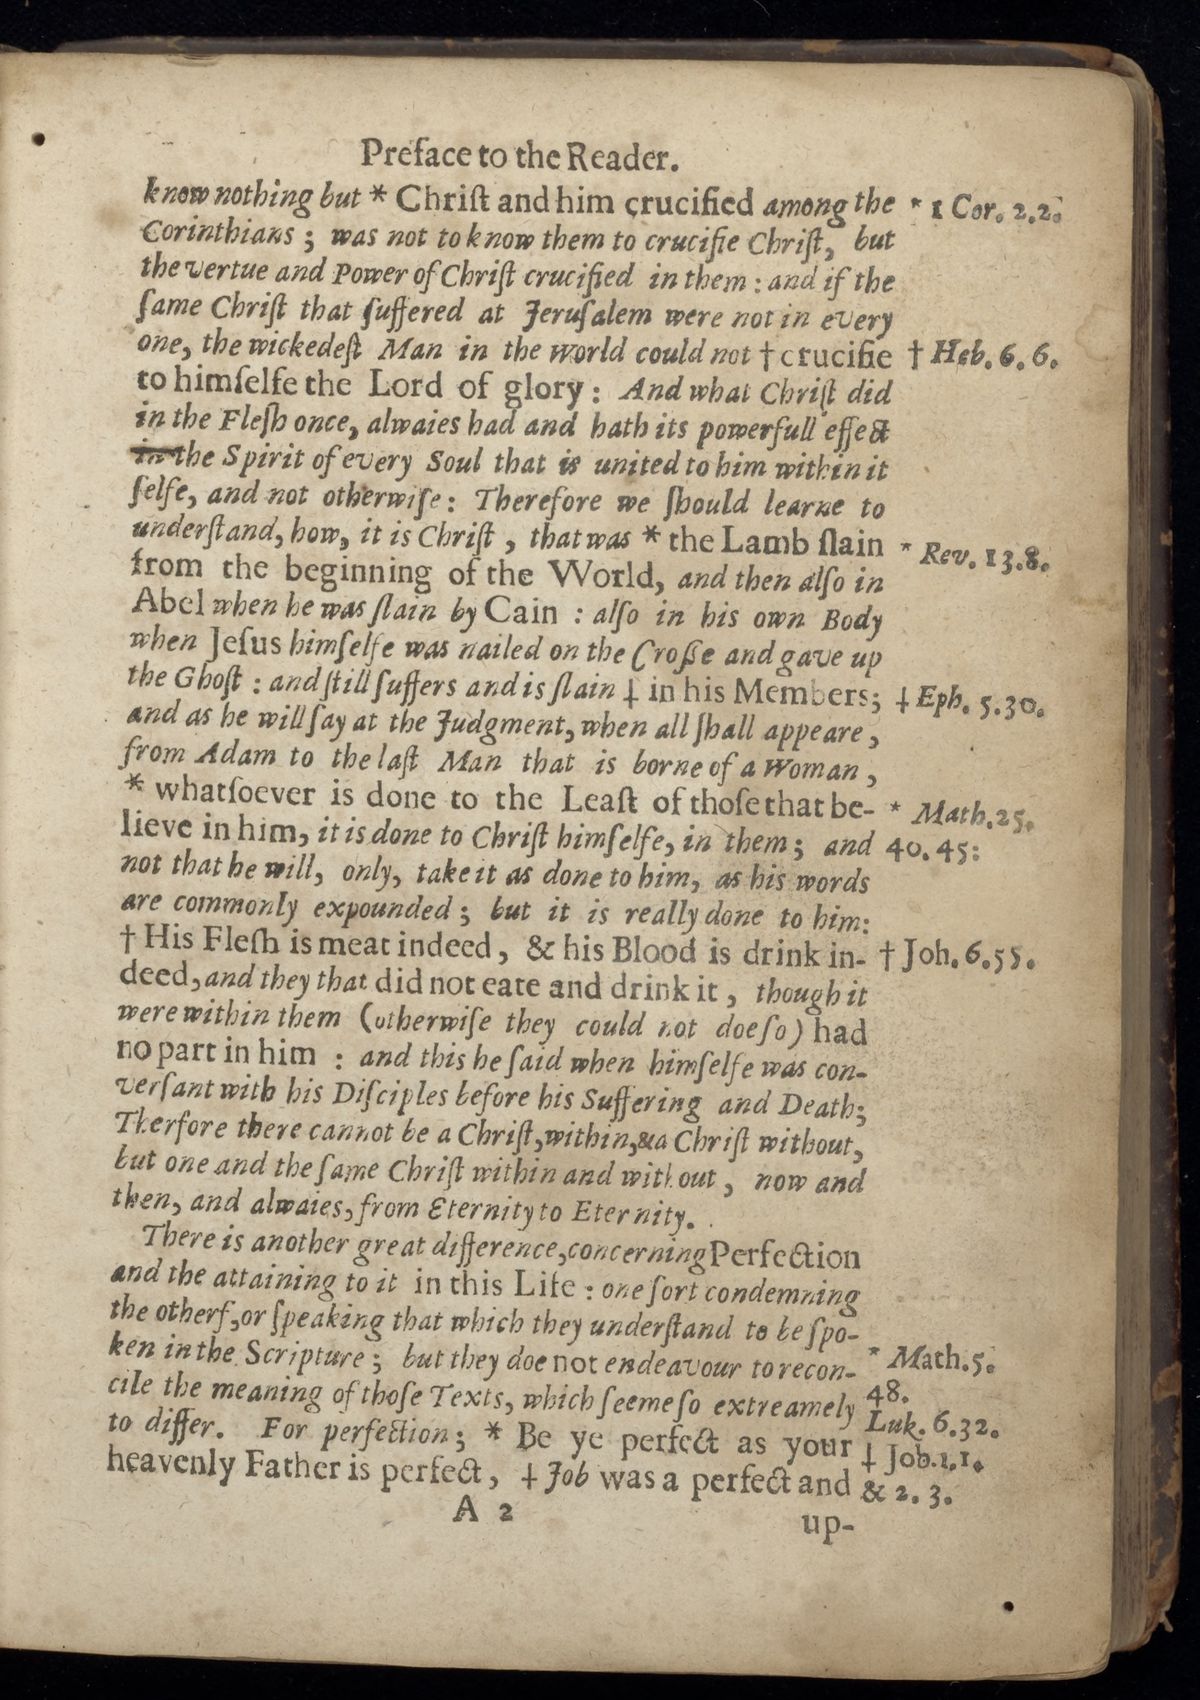 Preface to the Reader.
know nothing but * Chriſt and him crucified among the * 1 Cor. 2.2.
Corinthians; was not to know them to crucifie Chriſt, but
the vertue and Power of Chriſt crucified in them: and if the
ſame Chriſt that ſuffered at Jeruſalem were not in every
one, the wickedeſt Man in the World could not † crucifie † Heb. 6. 6.
to himſelfe the Lord of glory: And what Chriſt did
in the Fleſh once, alwaies had and hath its powerfull effect
in the Spirit of every Soul that is united to him within it
ſelfe, and not otherwiſe: Therefore we ſhould learne to
underſtand, how, it is Chriſt, that was * the Lamb ſlain * Rev. 13.8.
from the beginning of the World, and then alſo in
Abel when he was ſlain by Cain: alſo in his own Body
when Jeſus himſelfe was nailed on the Croſſe and gave up
the Ghoſt: and ſtill ſuffers and is ſlain ‡ in his Members; ‡ Eph. 5.30.
and as he will ſay at the Judgment, when all ſhall appeare,
from Adam to the laſt Man that is borne of a Woman,
* whatſoever is done to the Leaſt of thoſe that be- * Math. 25.
lieve in him, it is done to Chriſt himſelfe, in them; and 40. 45:
not that he will, only, take it as done to him, as his words
are commonly expounded; but it is really done to him:
† His Fleſh is meat indeed, & his Blood is drink in- † Joh. 6.55.
deed, and they that did not eate and drink it, though it
were within them (otherwiſe they could not doe ſo) had
no part in him: and this he ſaid when himſelfe was con-
verſant with his Diſciples before his Suffering and Death;
Therfore there cannot be a Chriſt, within, & a Chriſt without,
but one and the ſame Chriſt within and without, now and
then, and alwaies, from Eternity to Eternity.
There is another great difference, concerning Perfection
and the attaining to it in this Life: one ſort condemning
the otherſ, or ſpeaking that which they underſtand to be ſpo-
ken in the Scripture; but they doe not endeavour to recon- * Math. 5.
cile the meaning of thoſe Texts, which ſeeme ſo extreamely 48.
Luk. 6.32.
to differ. For perfection; * Be ye perfect as your ‡ Job. 1.1.
heavenly Father is perfect, ‡ Job was a perfect and & 2. 3.
A 2
up-